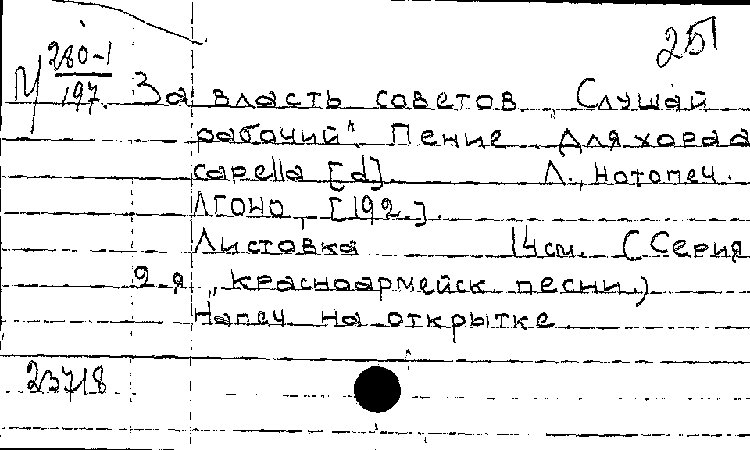 251
М 280-1
197.
За власть советов „Слушай
рабочий". Пение для хора a
capella [d]. Л., Нотопеч.
ЛГОНО, [192.].
Листовка 14 см. (Серия
2-я „Красноармейск песни.)
Напеч на открытке
23718